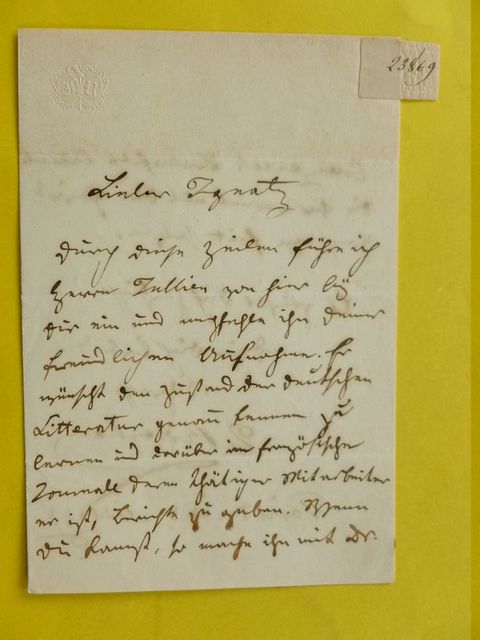 23869
Lieber Ignatz
Durch diese Zeilen führe ich
Herrn Jullien von hier bei
dir ein und empfehle ihn deiner
freundlichen Aufnahme. Er
wünscht den Zustand der deutschen
Litteratur genau kennen zu
lernen und darüber in französische
Journale deren thätiger Mitarbeiter
er ist, Berichte zu geben. Wenn
du kannst, so mache ihn mit Dr.